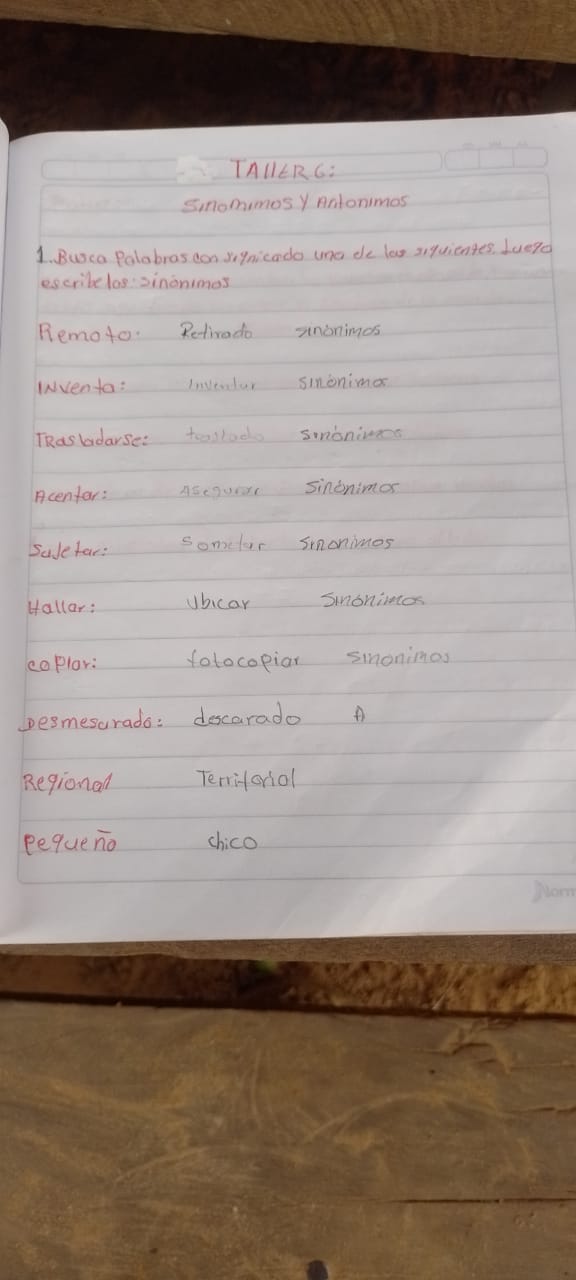 TALLER 6:
Sinonimos y Antonimos
1. Busca Palabras con signicado uno de las siguientes. Luego
escribe los: sinónimos
Remoto: Retirado sinónimos
INventa: Inventar sinónimos
TRasladarse: traslado sinónimos
Acentar: Asegurar Sinónimos
Sujetar: Someter sinonimos
Hallar: Ubicar Sinónimos
copiar: fotocopiar sinonimos
Desmesurado: descarado A
Regional Territorial
Pequeño chico
Norm